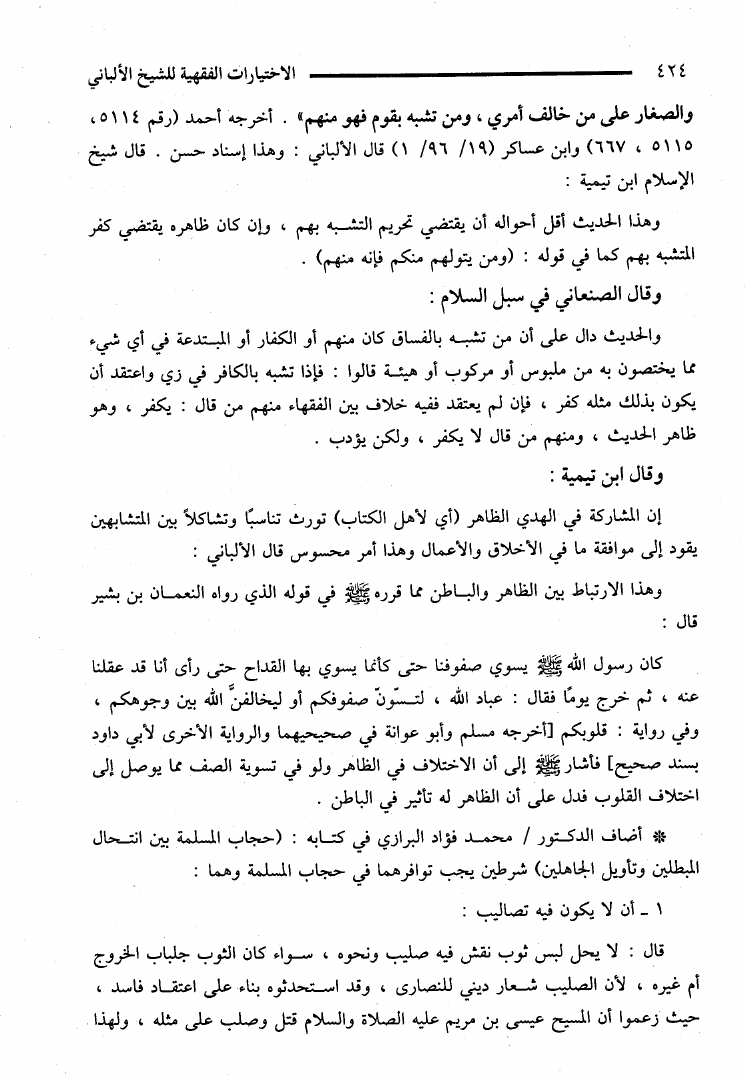 ٤٢٤ الاختيارات الفقهية للشيخ الألباني
والصغار على من خالف أمري ، ومن تشبه بقوم فهو منهم» . أخرجه أحمد (رقم ٥١١٤ ،
٥١١٥ ، ٦٦٧) وابن عساكر (١٩/ ٩٦/ ١) قال الألباني : وهذا إسناد حسن . قال شيخ
الإسلام ابن تيمية :
وهذا الحديث أقل أحواله أن يقتضي تحريم التشبه بهم ، وإن كان ظاهره يقتضي كفر
المتشبه بهم كما في قوله : (ومن يتولهم منكم فإنه منهم) .
وقال الصنعاني في سبل السلام :
والحديث دال على أن من تشبه بالفساق كان منهم أو الكفار أو المبتدعة في أي شيء
مما يختصون به من ملبوس أو مركوب أو هيئة قالوا : فإذا تشبه بالكافر في زي واعتقد أن
يكون بذلك مثله كفر ، فإن لم يعتقد ففيه خلاف بين الفقهاء منهم من قال : يكفر ، وهو
ظاهر الحديث ، ومنهم من قال لا يكفر ، ولكن يؤدب .
وقال ابن تيمية :
إن المشاركة في الهدي الظاهر (أي لأهل الكتاب) تورث تناسبًا وتشاكلاً بين المتشابهين
يقود إلى موافقة ما في الأخلاق والأعمال وهذا أمر محسوس قال الألباني :
وهذا الارتباط بين الظاهر والباطن مما قرره ﷺ في قوله الذي رواه النعمان بن بشير
قال :
كان رسول الله ﷺ يسوي صفوفنا حتى كأنما يسوي بها القداح حتى رأى أنا قد عقلنا
عنه ، ثم خرج يومًا فقال : عباد الله ، لتسوّنّ صفوفكم أو ليخالفنَّ الله بين وجوهكم ،
وفي رواية : قلوبكم [أخرجه مسلم وأبو عوانة في صحيحيهما والرواية الأخرى لأبي داود
بسند صحيح] فأشار ﷺ إلى أن الاختلاف في الظاهر ولو في تسوية الصف مما يوصل إلى
اختلاف القلوب فدل على أن الظاهر له تأثير في الباطن .
* أضاف الدكتور / محمد فؤاد البرازي في كتابه : (حجاب المسلمة بين انتحال
المبطلين وتأويل الجاهلين) شرطين يجب توافرهما في حجاب المسلمة وهما :
١ ـ أن لا يكون فيه تصاليب :
قال : لا يحل لبس ثوب نقش فيه صليب ونحوه ، سواء كان الثوب جلباب الخروج
أم غيره ، لأن الصليب شعار ديني للنصارى ، وقد استحدثوه بناء على اعتقاد فاسد ،
حيث زعموا أن المسيح عيسى بن مريم عليه الصلاة والسلام قتل وصلب على مثله ، ولهذا